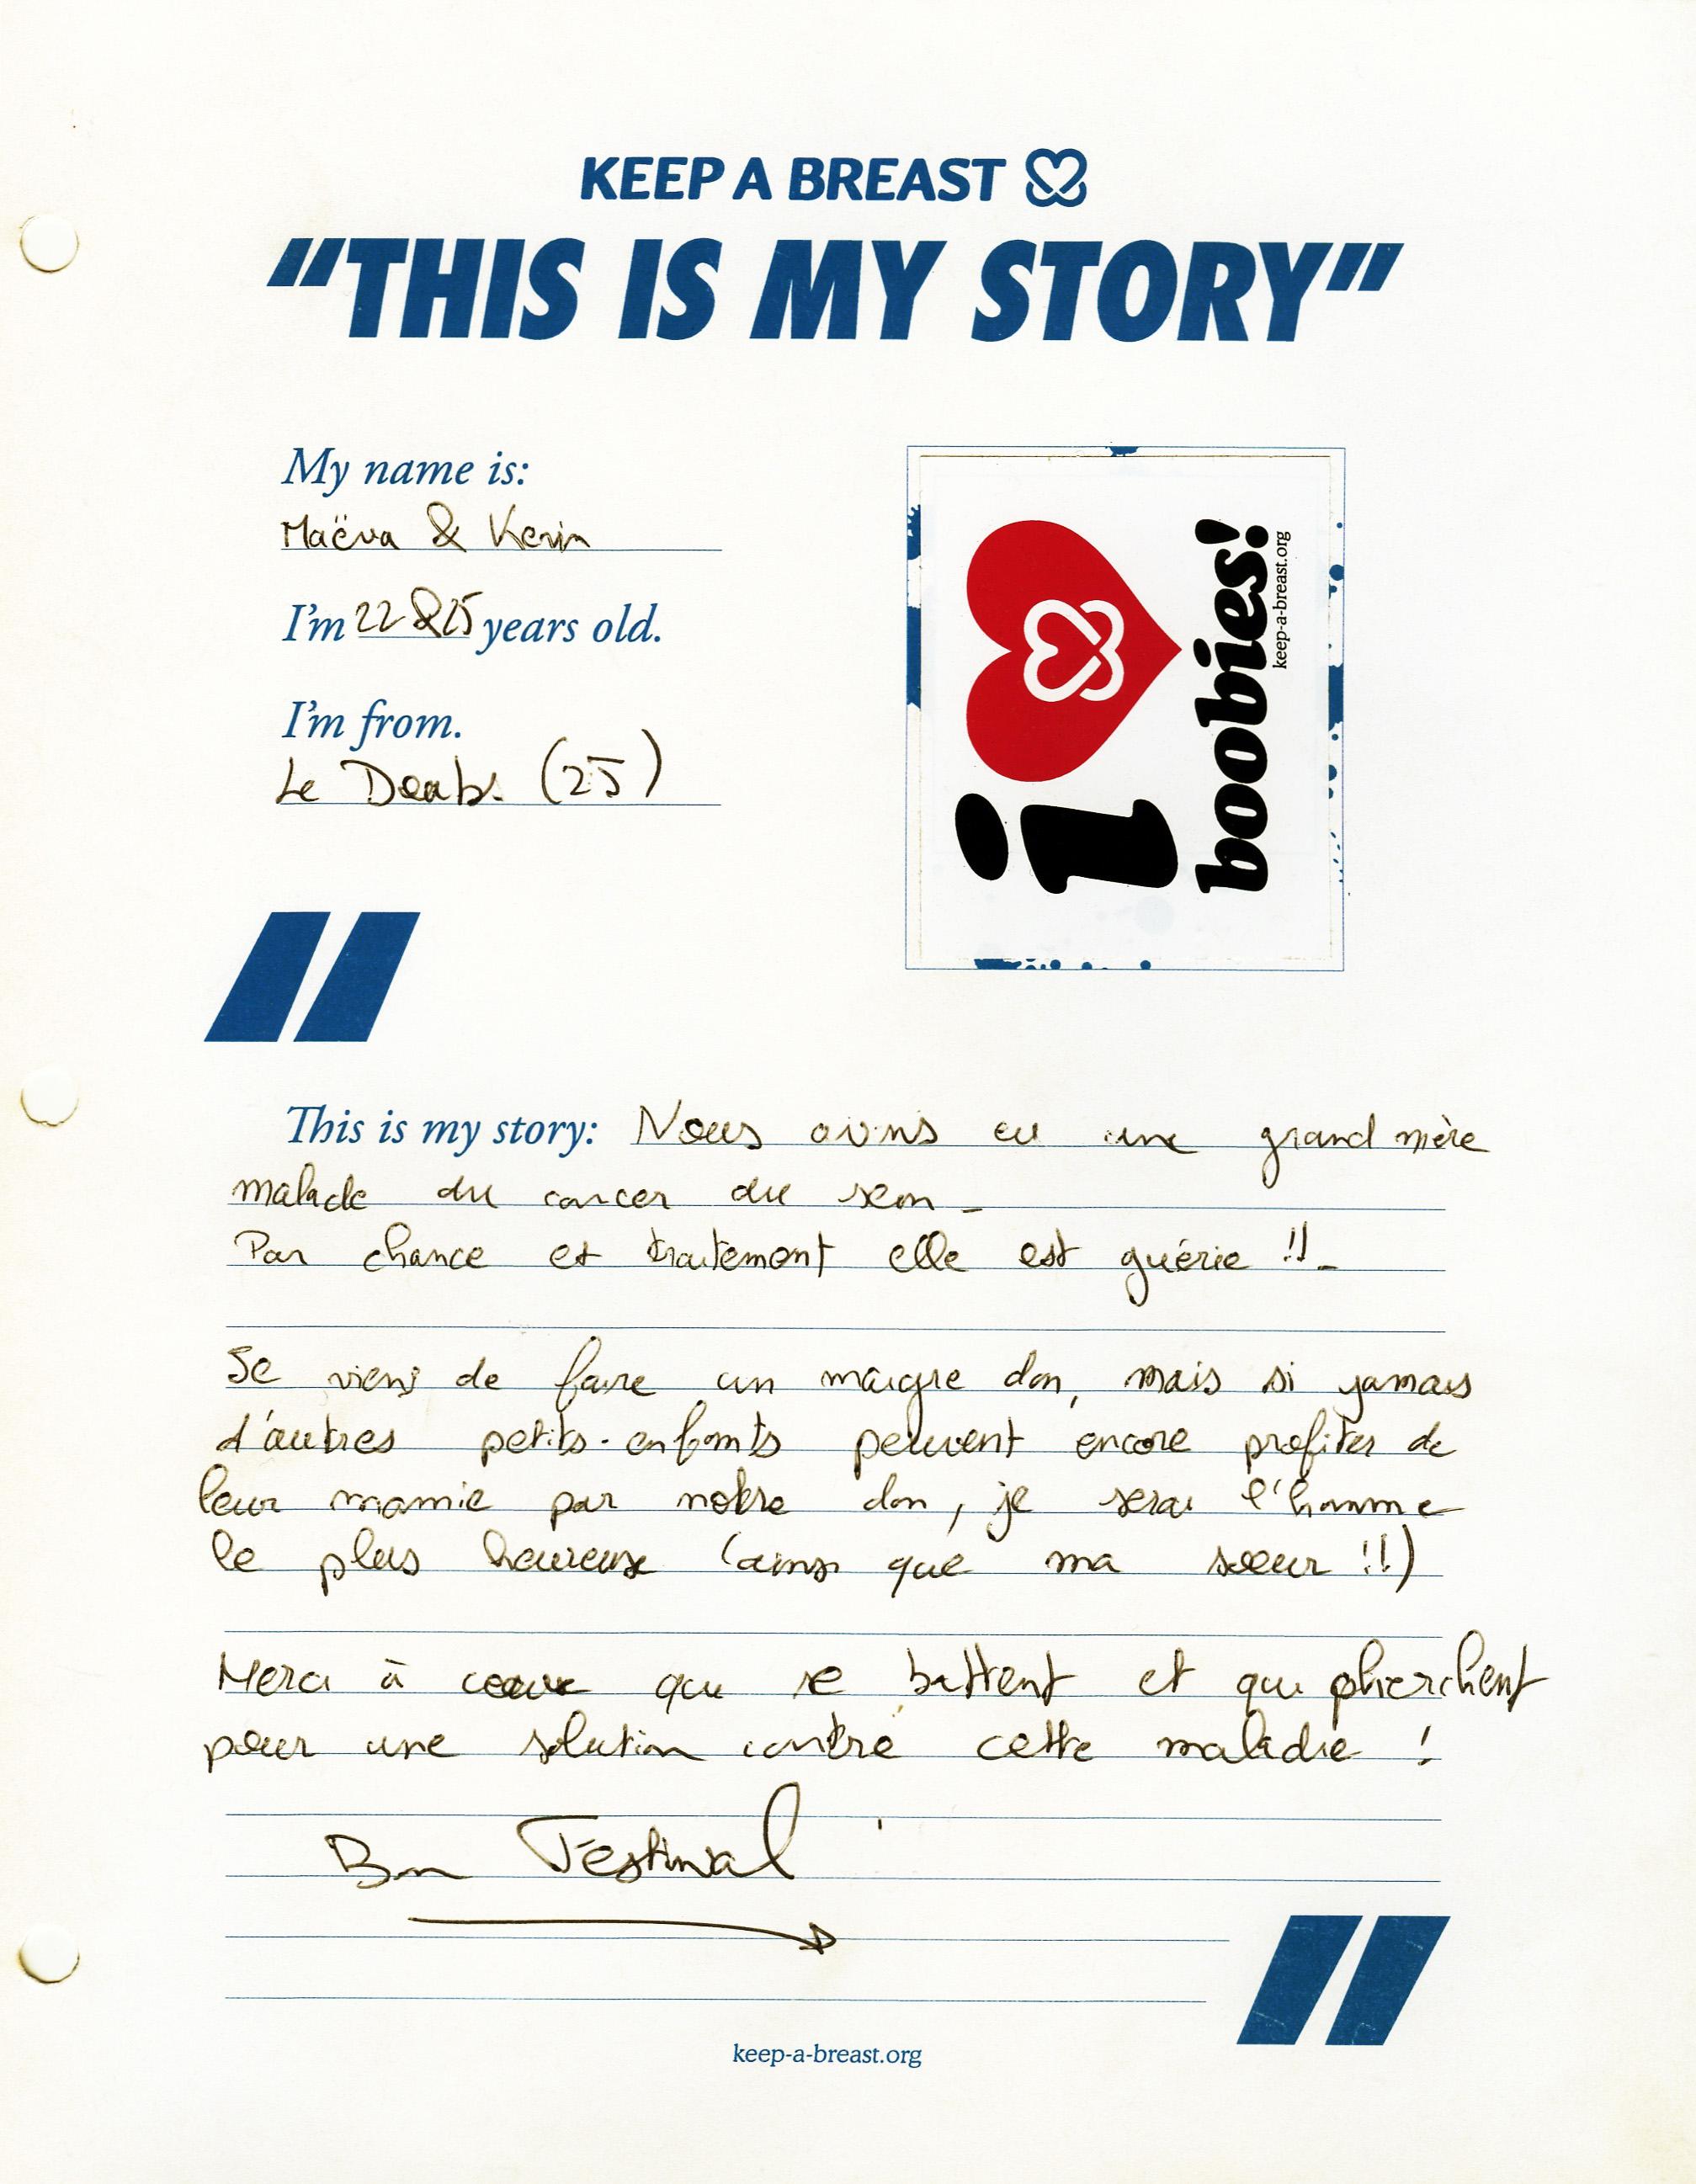 KEEP A BREAST
"THIS IS MY STORY"
My name is:
Maëva & Kevin
I'm 22 & 25 years old.
I'm from.
Le Doubs. (25)
i
boobies!
keep-a-breast.org
This is my story: Nous avons eu une grand mère
malade du cancer du sein_
Par chance et traitement elle est guérie !!_
Je viens de faire un maigre don, mais si jamais
d'autres petits-enfants peuvent encore profiter de
leur mamie par notre don, je serai l'homme
le plus heureux (ainsi que ma soeur !!)
Merci à ceux qui se battent et qui cherchent
pour une solution contre cette maladie !
Bon Festival
keep-a-breast.org